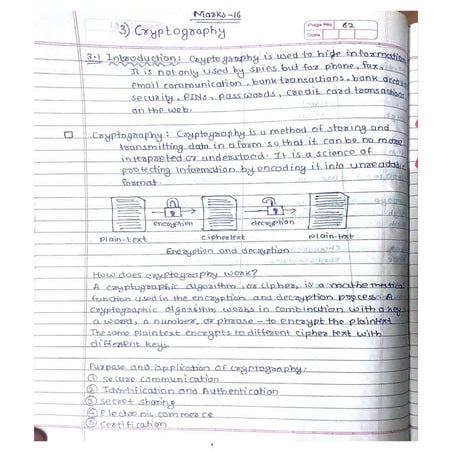 Marks-16
3) Cryptography
Page No. 62
Date
3.1 Introduction: Cryptography is used to hide information
It is not only used by spies but for phone, fax,
email communication, bank transactions, bank
security, PINs, passwords, credit card transactions
on the web.
Cryptography: Cryptography is a method of storing and
transmitting data in a form so that it can be no more
interpreted or understood. It is a science of
protecting information by encoding it into unreadable
format.
encryption decryption
plain-text Ciphertext plain-text
Encryption and decryption
How does cryptography work?
A cryptographic algorithm, or cipher, is a mathematical
function used in the encryption and decryption process. A
cryptographic algorithm works in combination with a key
a word, a number, or phrase - to encrypt the plaintext
The same plaintext encrypts to different cipher text with
different keys.
Purpose and application of cryptography:
① Secure communication
② Identification and Authentication
③ Secret sharing
④ Electronic commerce
⑤ Certification